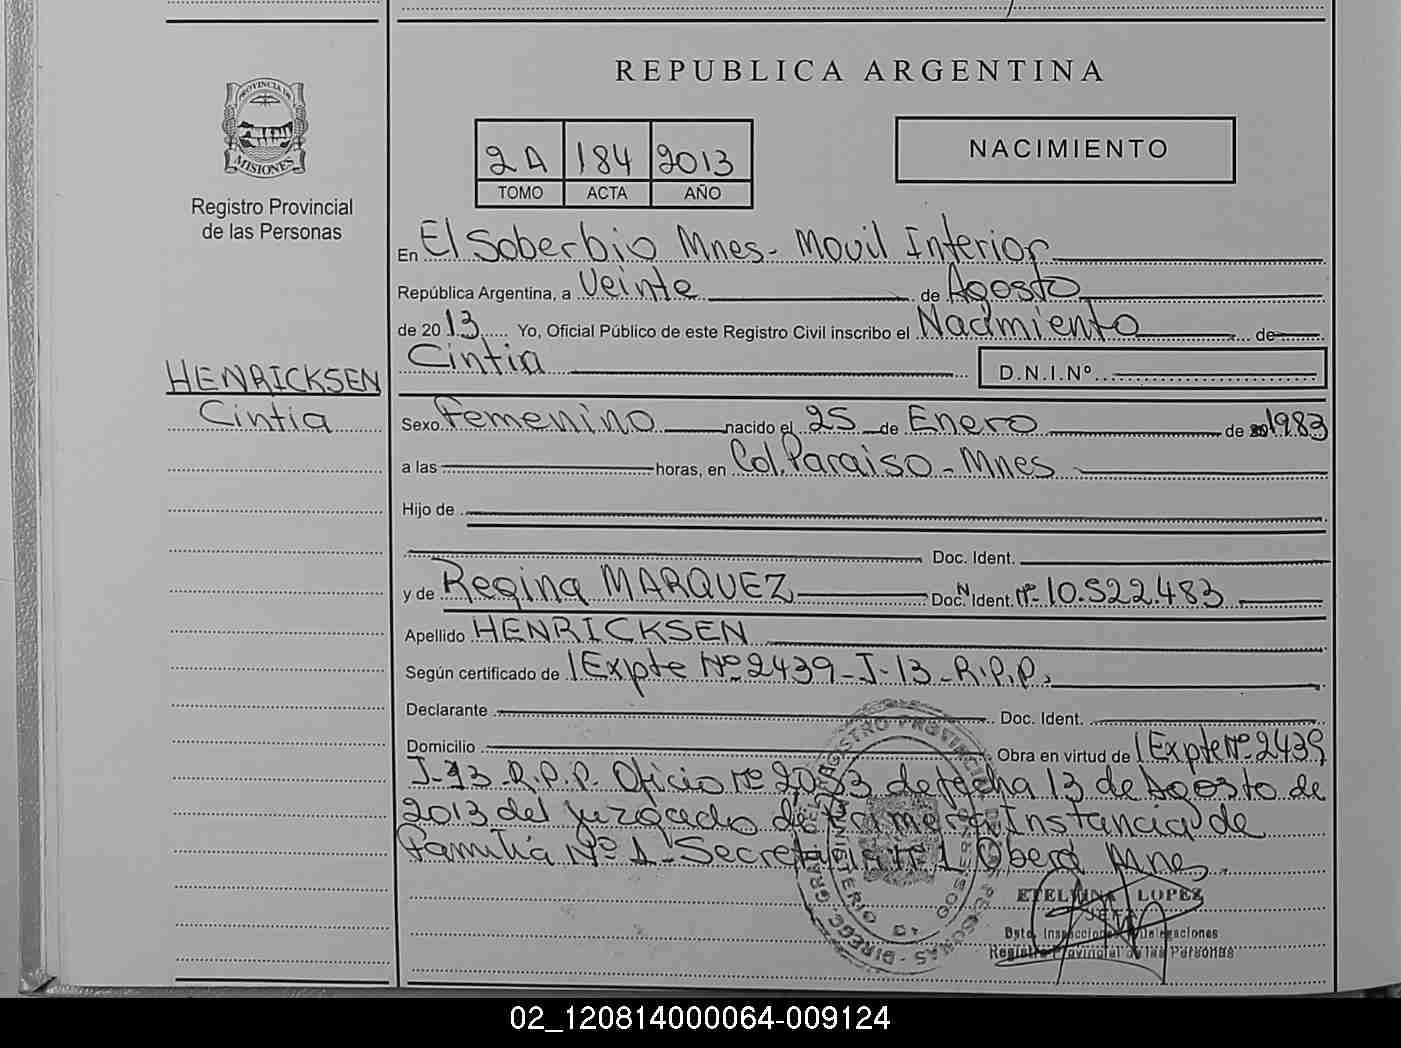 REPUBLICA ARGENTINA
PROVINCIA DE
MISIONES
2A 184 2013
TOMO ACTA AÑO
NACIMIENTO
Registro Provincial
de las Personas
En El Soberbio Mnes- Movil Interior
República Argentina, a Veinte de Agosto
de 2013 Yo, Oficial Público de este Registro Civil inscribo el Nacimiento de
Cintia D.N.I.Nº
HENRICKSEN
Cintia
Sexo Femenino nacido el 25 de Enero de 1983
a las horas, en Col. Paraiso - Mnes
Hijo de
Doc. Ident.
y de Regina MARQUEZ Doc. Ident. Nº 10.522.483
Apellido HENRICKSEN
Según certificado de /Expte Nº 2439-J-13-R.P.P.
Declarante Doc. Ident.
Domicilio Obra en virtud de /Expte Nº 2439
J-13 R.P.P. Oficio Nº 2053 de fecha 13 de Agosto de
2013 del Juzgado de Primera Instancia de
Familia Nº 1 - Secretaria Nº 1 Oberá Mnes.
ETELVINA LOPEZ
JEFA
Dpto. Inspecciones y Delegaciones
Registro Provincial de las Personas
02_120814000064-009124